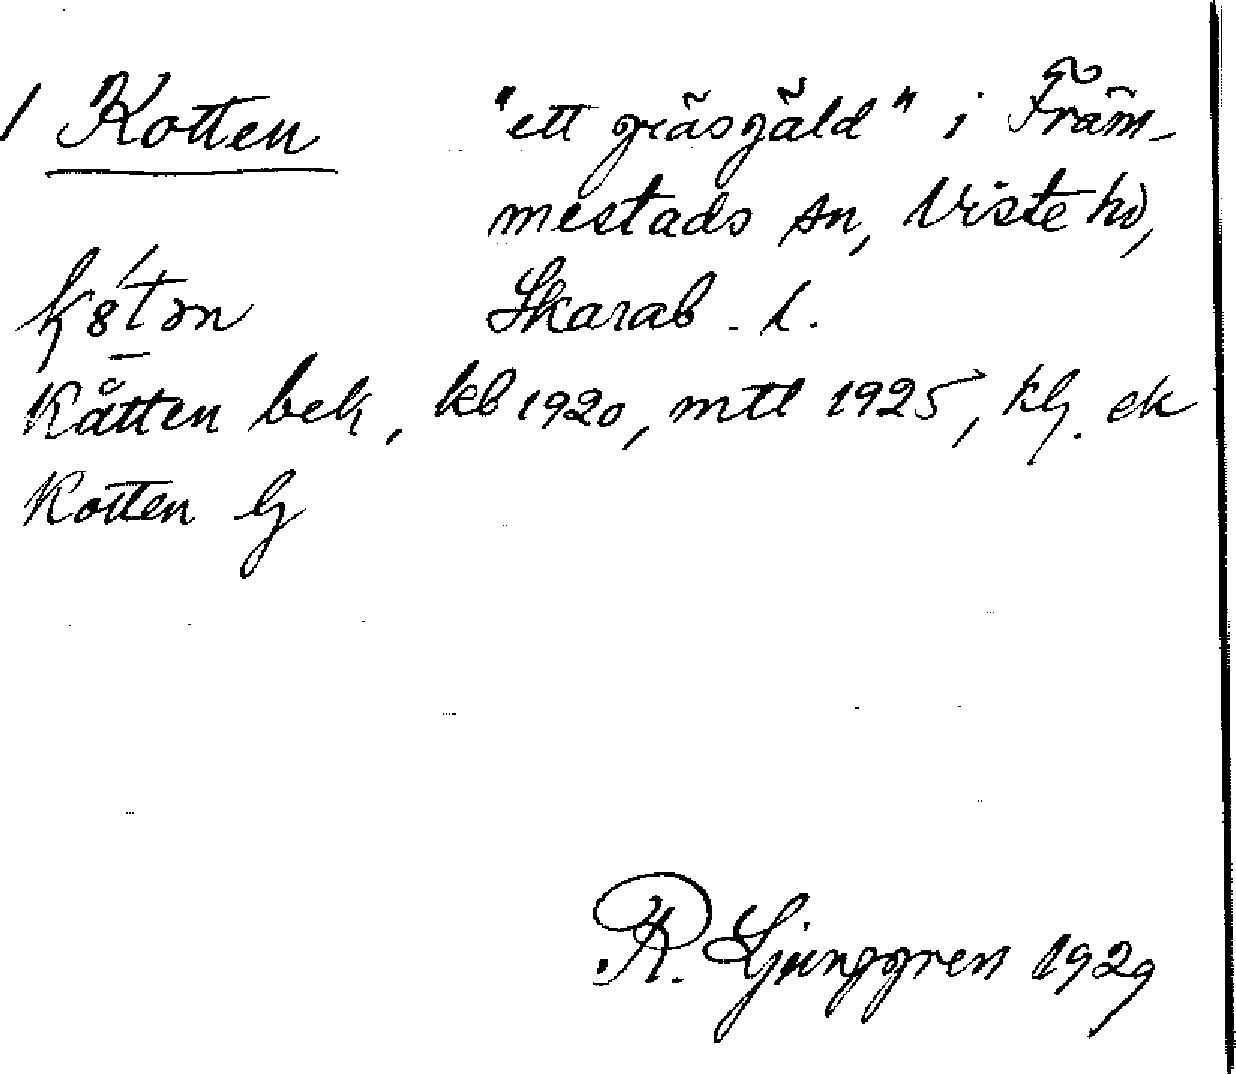 1 Kotten "ett gräsgäld" i Främ-
mestads sn, Viste hd,
k8't̠ən Skarab. l.
Kåtten bek, kb 1920, mtl 1925, klj. ek
Kotten Lj
R. Ljunggren 1929